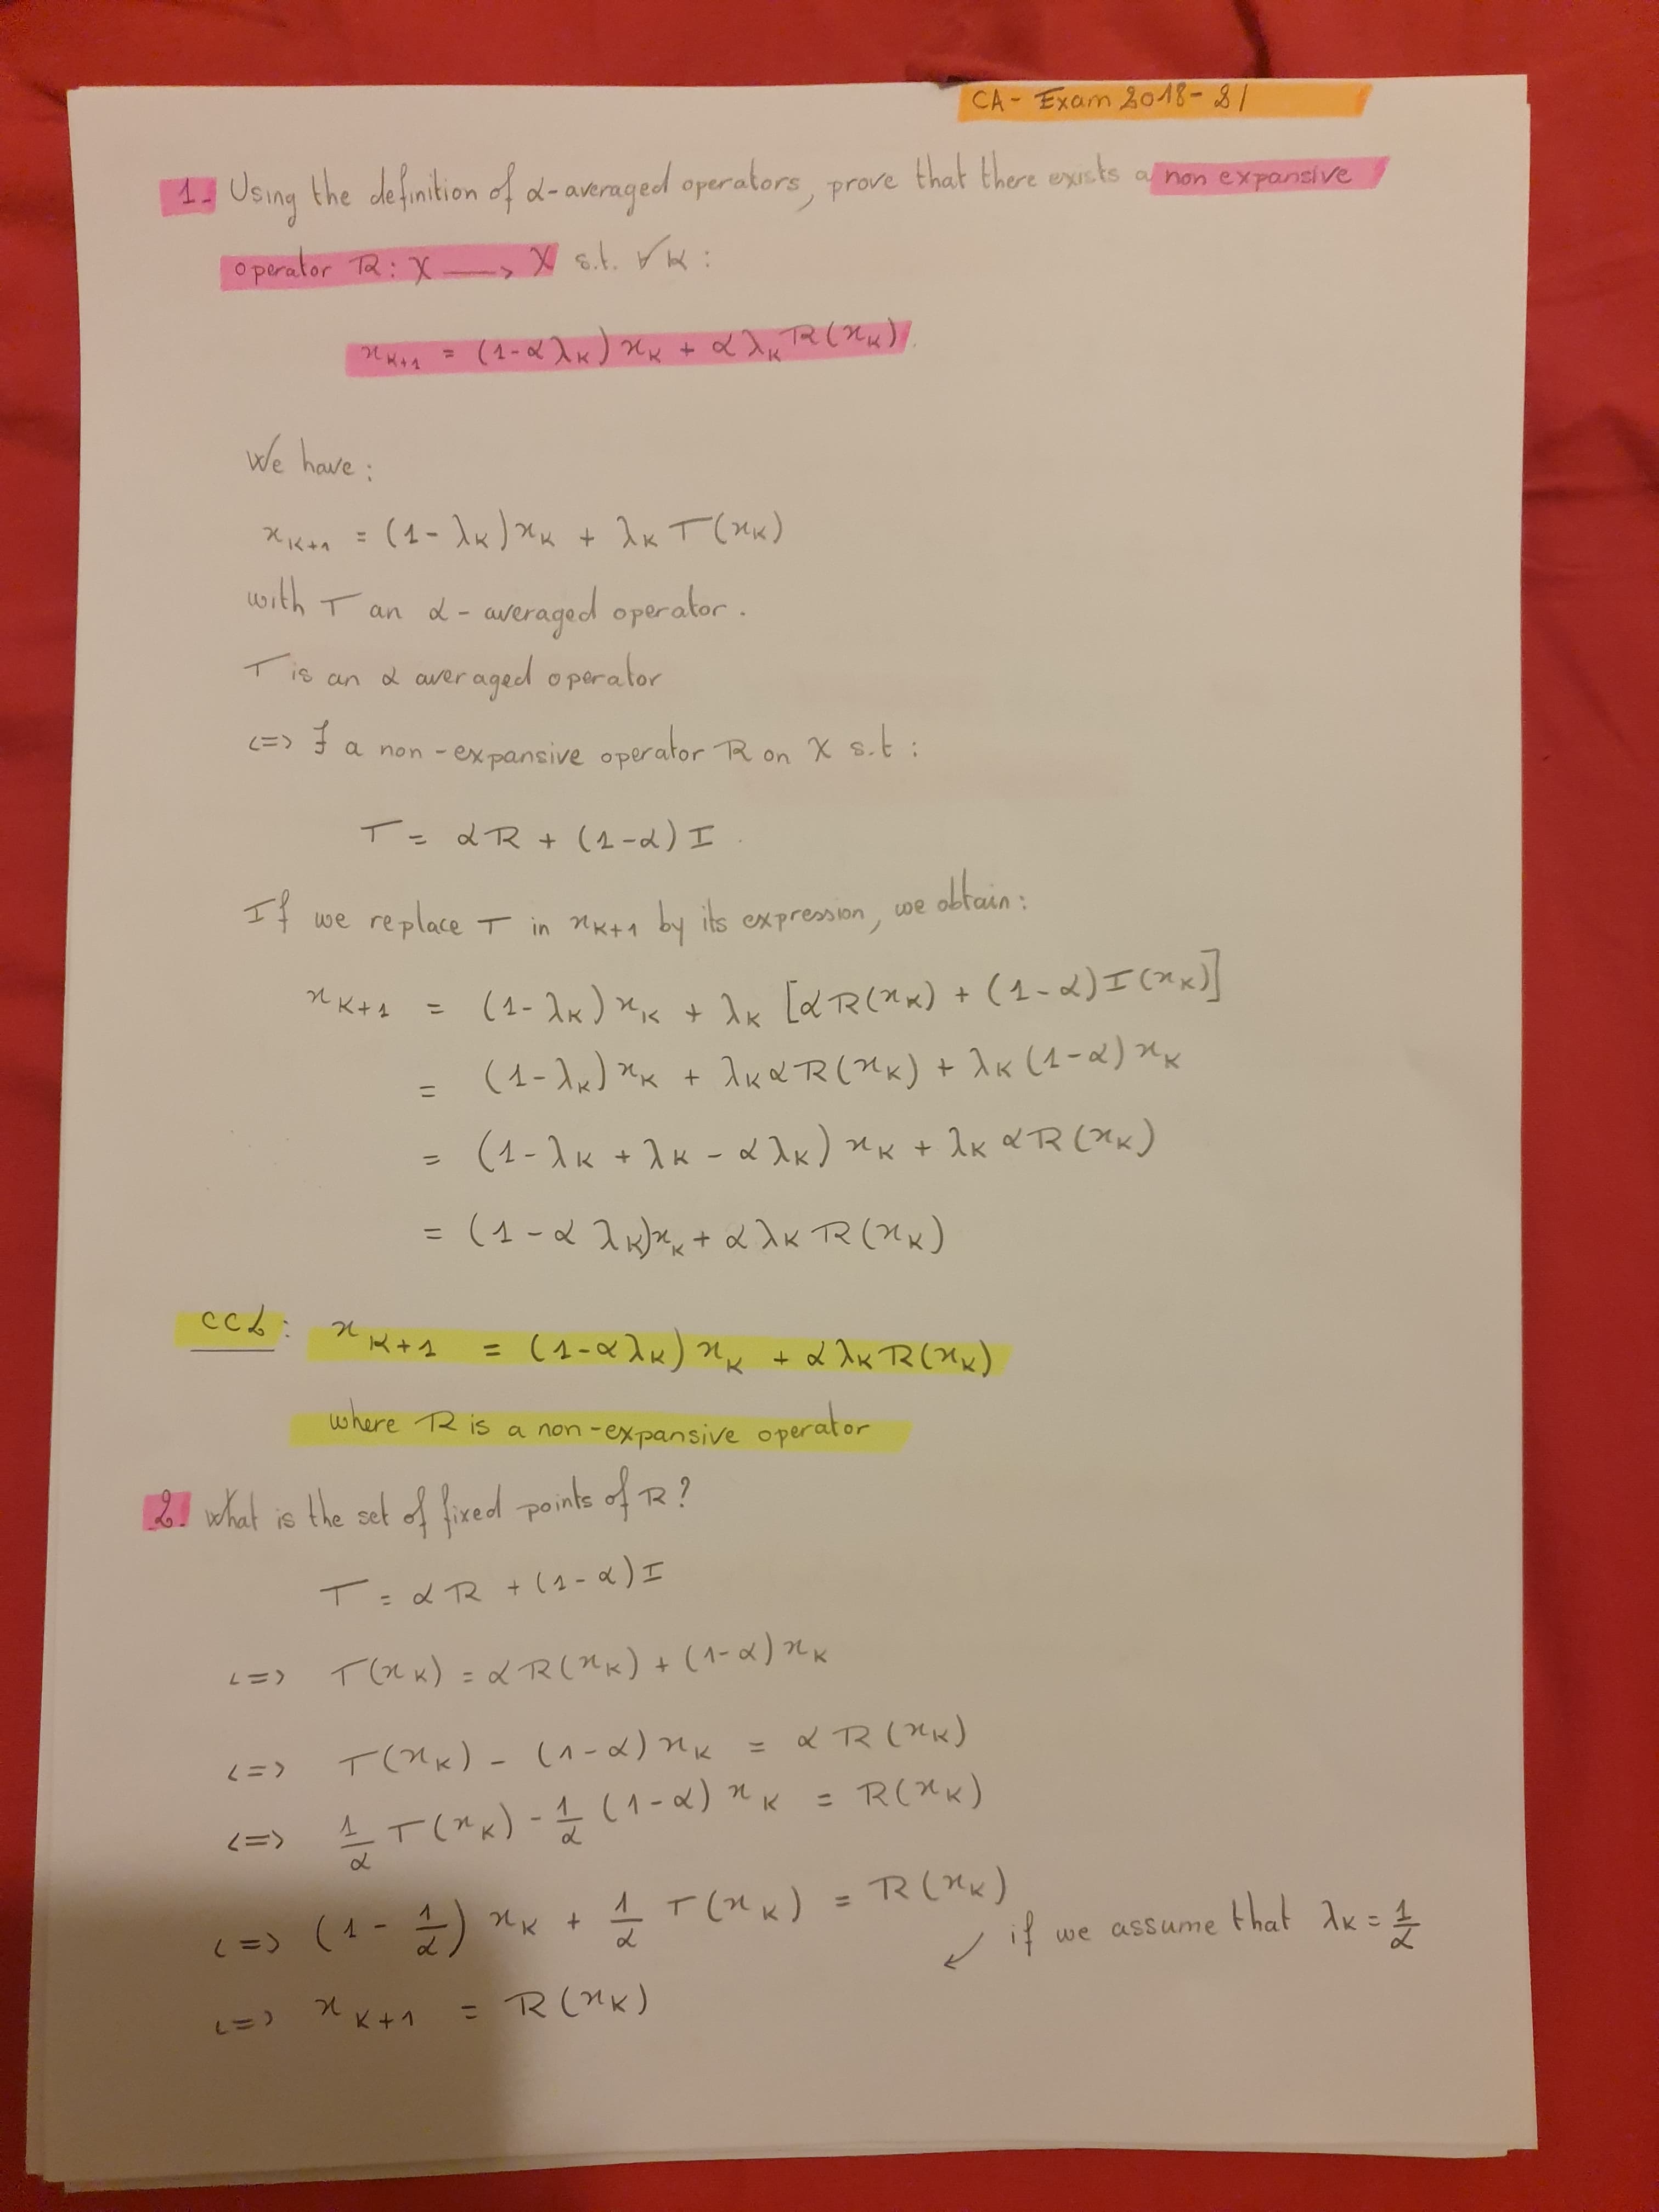 CA - Exam 2018 - 21
1- Using the definition of α-averaged operators, prove that there exists a non expansive
operator R : X ⟶ X s.t. ∀K :
x_{K+1} = (1-αλ_K) x_K + αλ_K R(x_K).
We have :
x_{K+1} = (1-λ_K) x_K + λ_K T(x_K)
with T an α-averaged operator.
T is an α averaged operator
<=> ∃ a non-expansive operator R on X s.t :
T = αR + (1-α) I.
If we replace T in x_{K+1} by its expression, we obtain :
x_{K+1} = (1-λ_K) x_K + λ_K [αR(x_K) + (1-α) I(x_K)]
= (1-λ_K) x_K + λ_K αR(x_K) + λ_K (1-α) x_K
= (1-λ_K + λ_K - αλ_K) x_K + λ_K αR(x_K)
= (1-αλ_K) x_K + αλ_K R(x_K)
CCL : x_{K+1} = (1-αλ_K) x_K + αλ_K R(x_K)
where R is a non-expansive operator
2. What is the set of fixed points of R ?
T = αR + (1-α) I
<=> T(x_K) = αR(x_K) + (1-α) x_K
<=> T(x_K) - (1-α) x_K = αR(x_K)
<=> 1/α T(x_K) - 1/α (1-α) x_K = R(x_K)
<=> (1 - 1/α) x_K + 1/α T(x_K) = R(x_K)
↙ if we assume that λ_K = 1/α
<=> x_{K+1} = R(x_K)